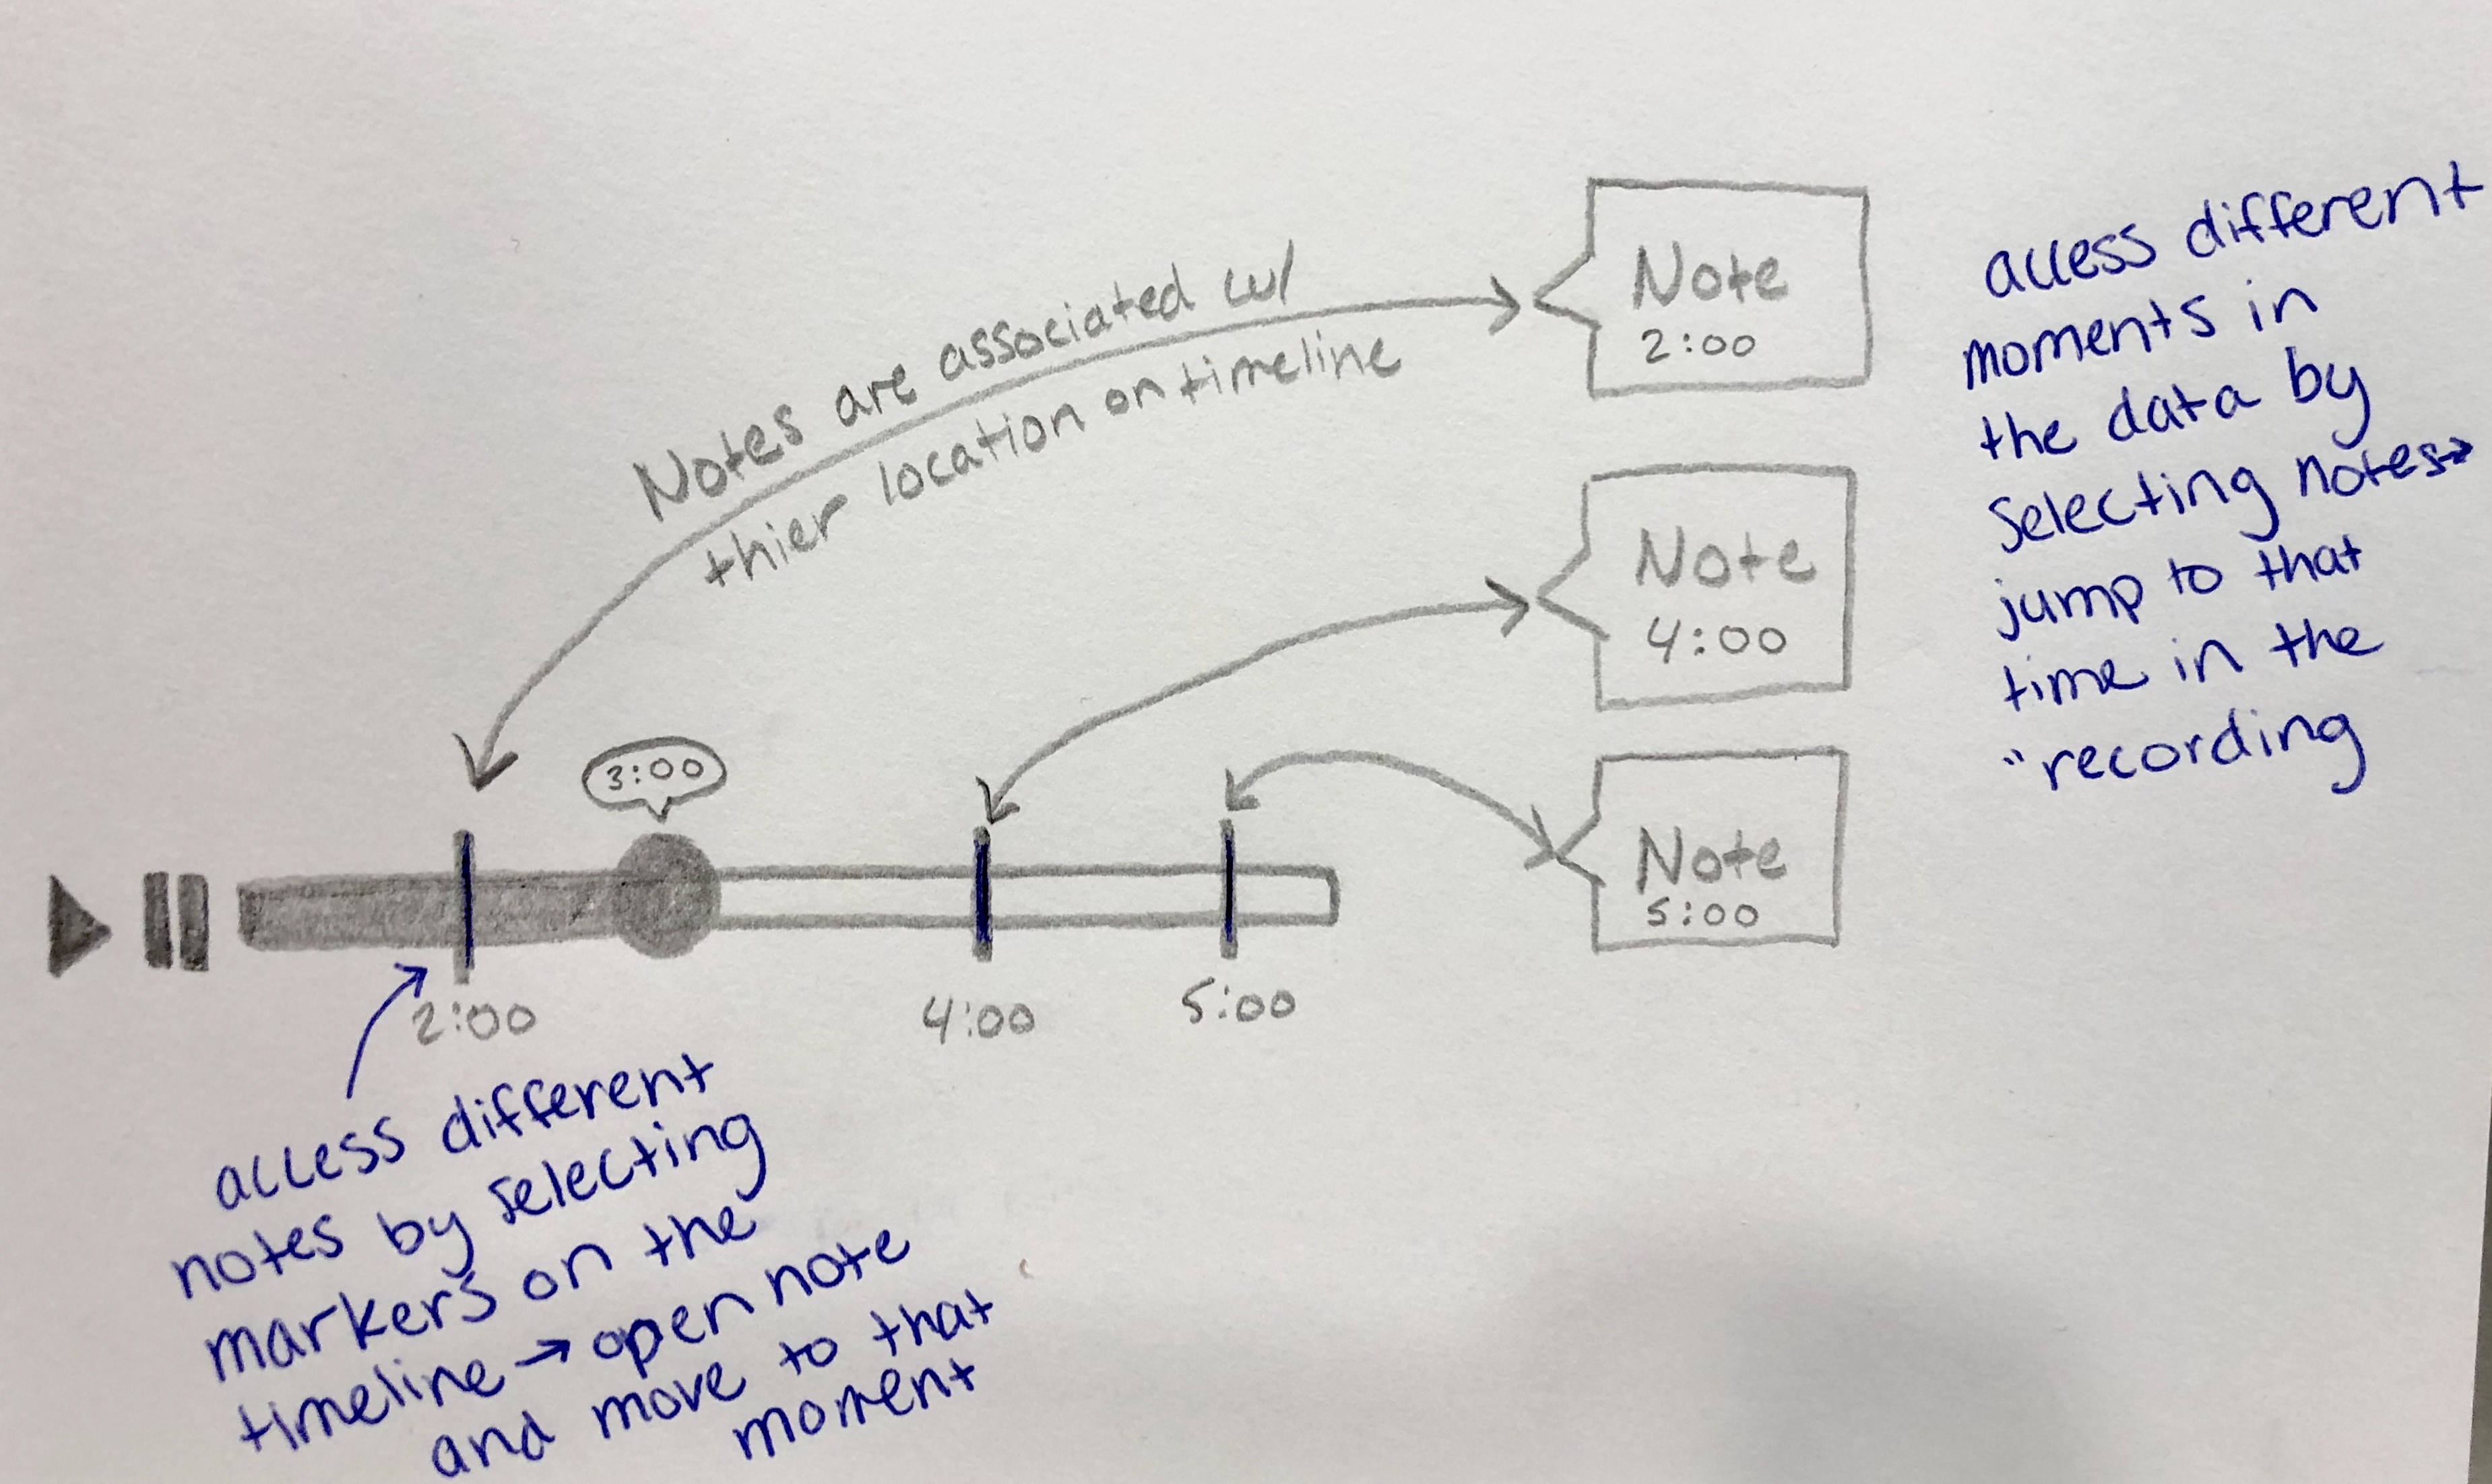 Notes are associated w/
thier location on timeline
Note
2:00
access different
moments in
the data by
selecting notes→
jump to that
time in the
"recording
Note
4:00
3:00
Note
5:00
2:00
4:00
5:00
access different
notes by selecting
markers on the
timeline → open note
and move to that
moment